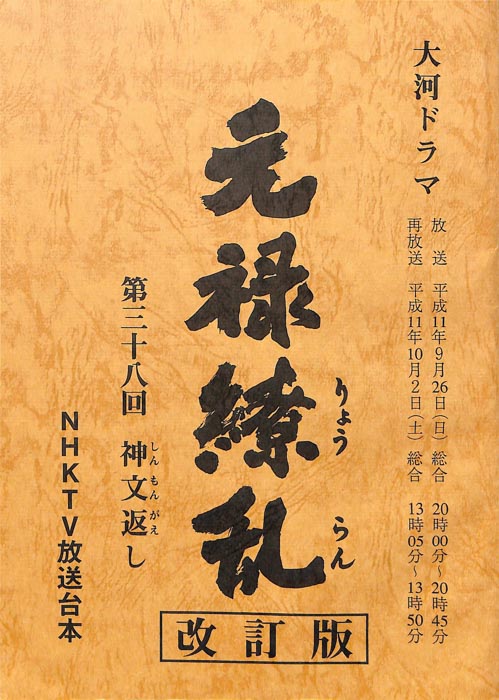 大河ドラマ
放送 平成11年9月26日(日) 総合 20時00分〜20時45分
再放送 平成11年10月2日(土) 総合 13時05分〜13時50分
元禄繚乱
りょうらん
第三十八回 神文返し
しんもんがえ
NHKTV放送台本
改訂版